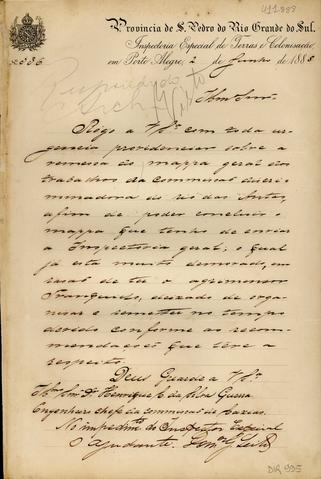 411.888
Provincia de S. Pedro do Rio Grande do Sul.
Inspectoria Especial de Terras e Colonisação,
em Porto Alegre, 2 de Junho de 1888
Illmo Snr.
Rogo a V.Sª com toda ur-
gencia providenciar sobre a
remessa do mappa geral dos
trabalhos da Commissão discri-
minadora do rio das Antas,
afim de poder concluir o
mappa que tenho de enviar
a Inspectoria geral; o qual
já está muito demorado, em
rasão de ter o agrimensor
deixado de orga-
nisar e remetter no tempo
devido conforme as recom-
mendações que teve a
respeito.
Deus Guarde a V.Sª.
Illmo Snr. Dr. Henrique C. da Silva
Engenheiro Chefe da Commissão de Caxias.
No impedimto do Inspector Especial
O Ajudante.
DIR 995